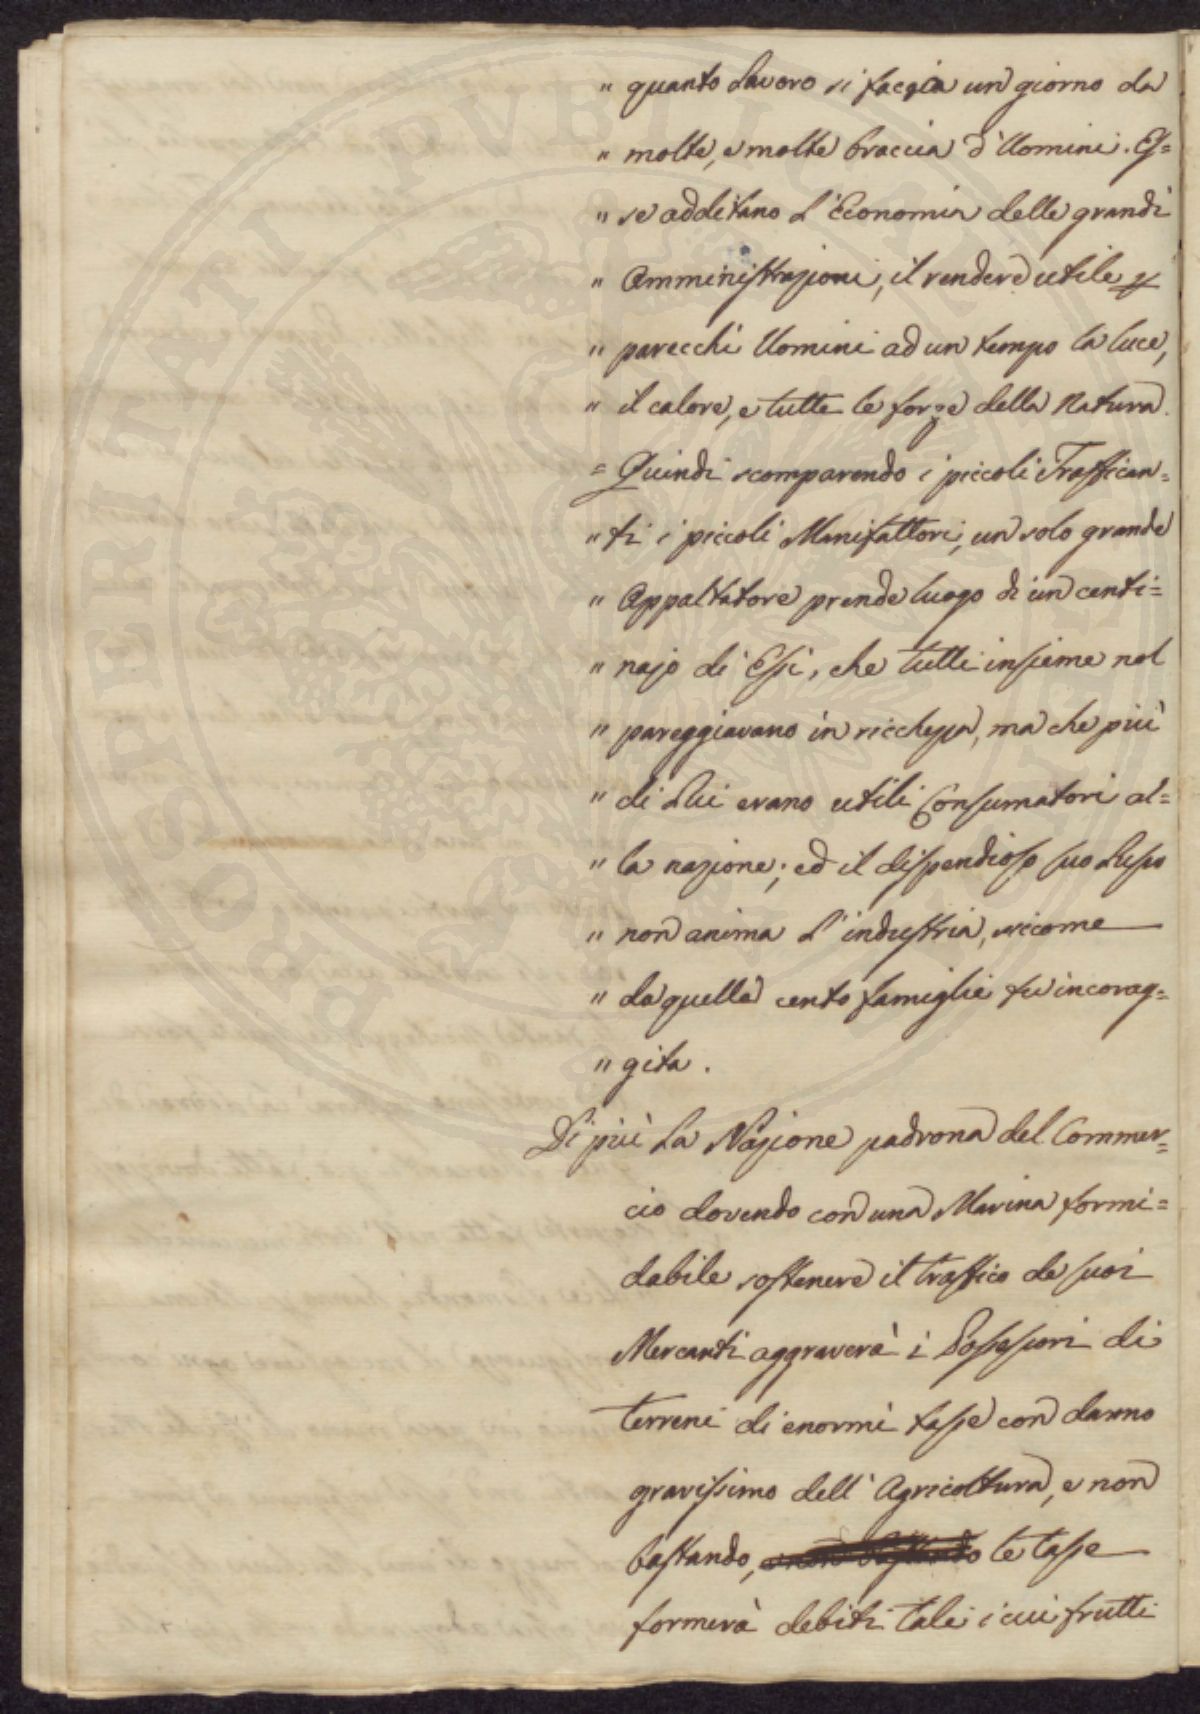 " quanto Lavoro si faccia un giorno da
" molte, e molte braccia d'Uomini. Es=
" se additano L'Economia delle grandi
" Amministrazioni, il rendere utile a
" parecchi Uomini ad un tempo la luce,
" il calore, e tutte le forze della Natura.
= Quindi scomparendo i piccoli Traffican=
" ti i piccoli Manifattori, un solo grande
" Appaltatore prende luogo di un centi=
" najo di Essi, che tutti insieme nol
" pareggiavano in ricchezza, ma che più
" di Lui erano utili Consumatori al=
" la nazione; ed il dispendioso suo Lusso
" non anima L'industria, siccome
" da quelle cento famiglie fu incorag=
" gita.
Di più La Nazione padrona del Commer=
cio dovendo con una Marina formi=
dabile sostenere il traffico de suoi
Mercanti aggraverà i Possessori di
terreni di enormi tasse con danno
gravissimo dell'Agricoltura, e non
bastando, e non bastando le tasse
formerà debiti tali i cui frutti
PROSPERITATI PVBLICAE